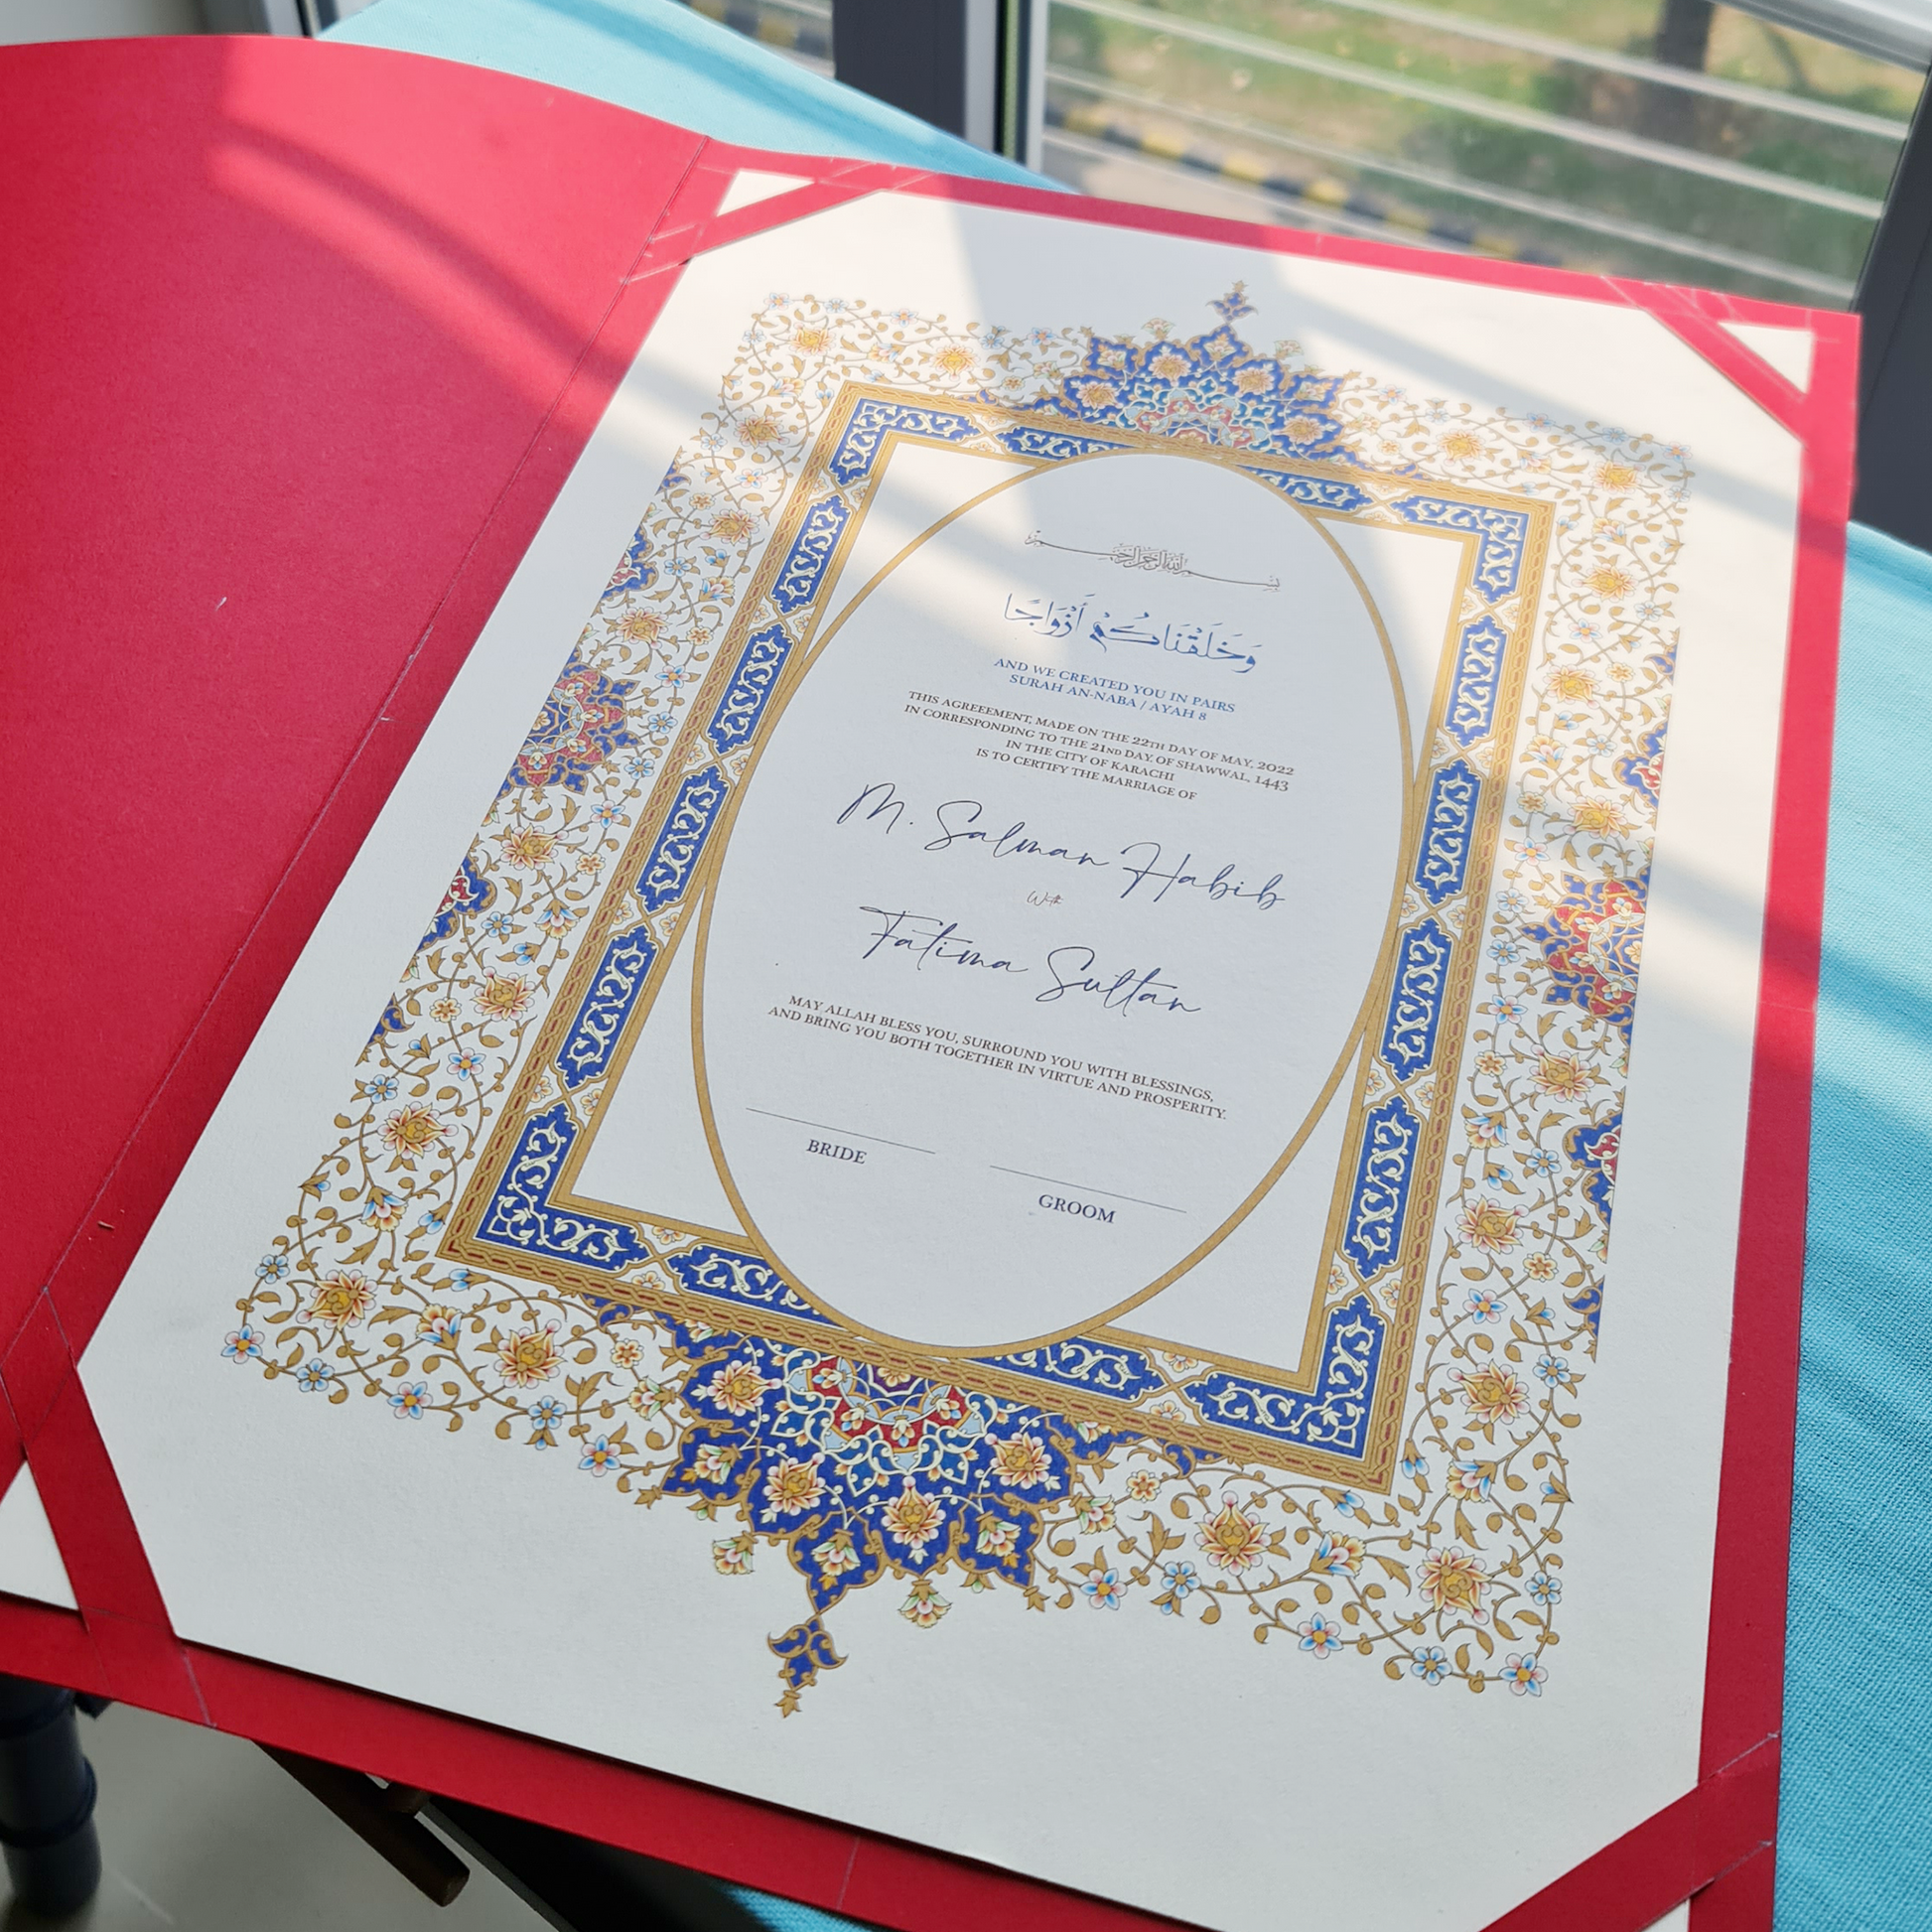 بسم الله الرحمن الرحيم
وَخَلَقْنَاكُمْ أَزْوَاجًا
AND WE CREATED YOU IN PAIRS
SURAH AN-NABA / AYAH 8
THIS AGREEEMENT, MADE ON THE 22TH DAY OF MAY, 2022
IN CORRESPONDING TO THE 21ND DAY, OF SHAWWAL, 1443
IN THE CITY OF KARACHI
IS TO CERTIFY THE MARRIAGE OF
M. Salman Habib
With
Fatima Sultan
MAY ALLAH BLESS YOU, SURROUND YOU WITH BLESSINGS,
AND BRING YOU BOTH TOGETHER IN VIRTUE AND PROSPERITY.
BRIDE
GROOM